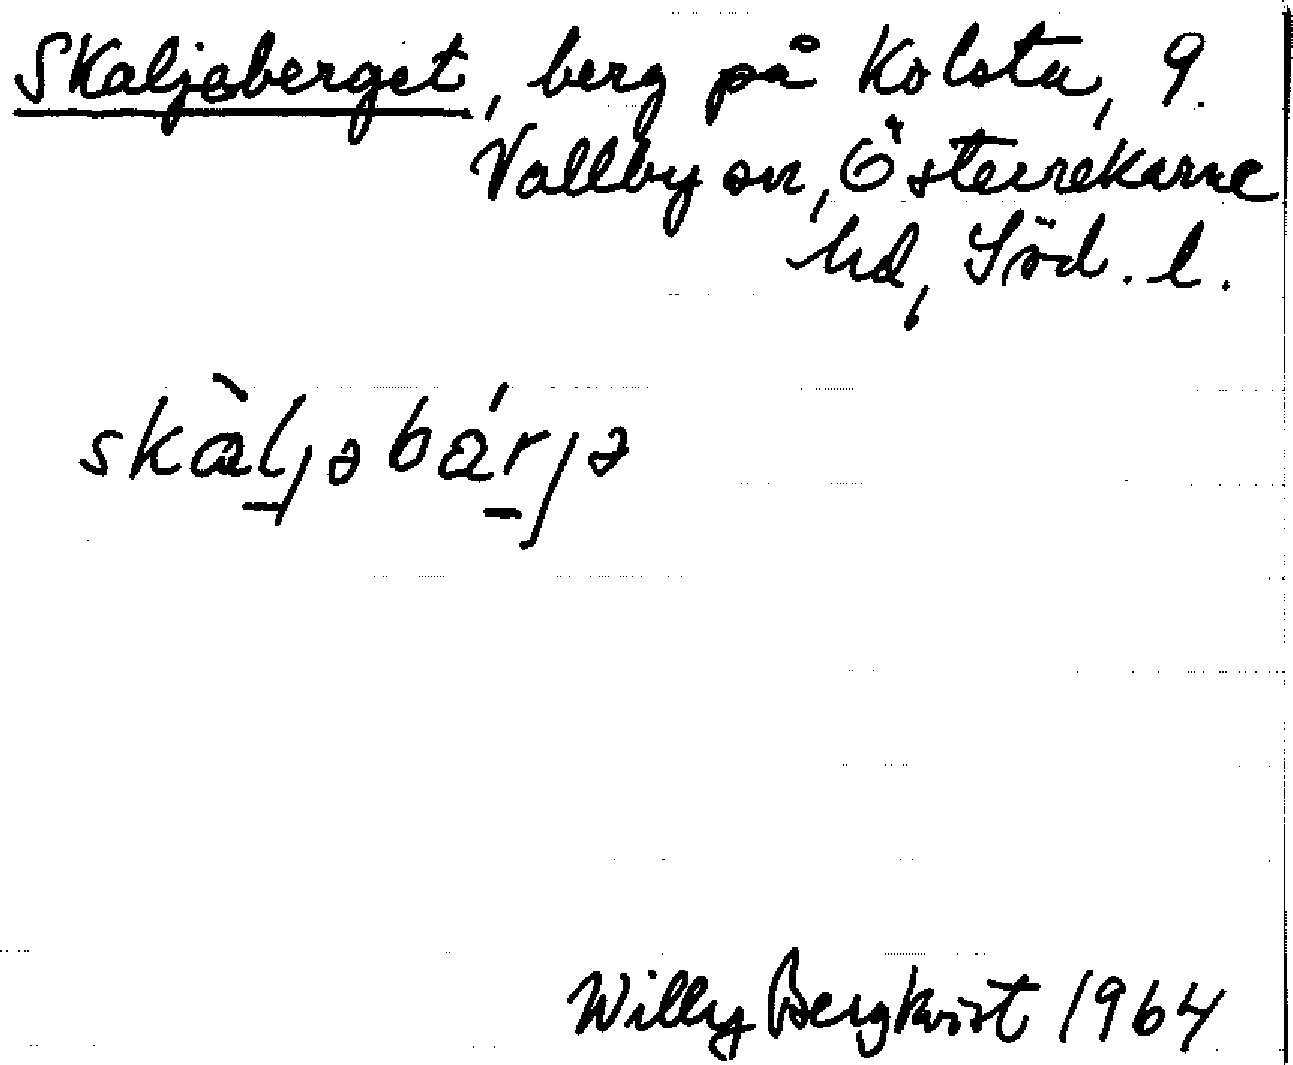 Skaljeberget, berg på Kolsta, 9.
Vallby sn, Österrekarne
hd, Söd. l.
skàl̠jəbárjə
Willy Bergkvist 1964